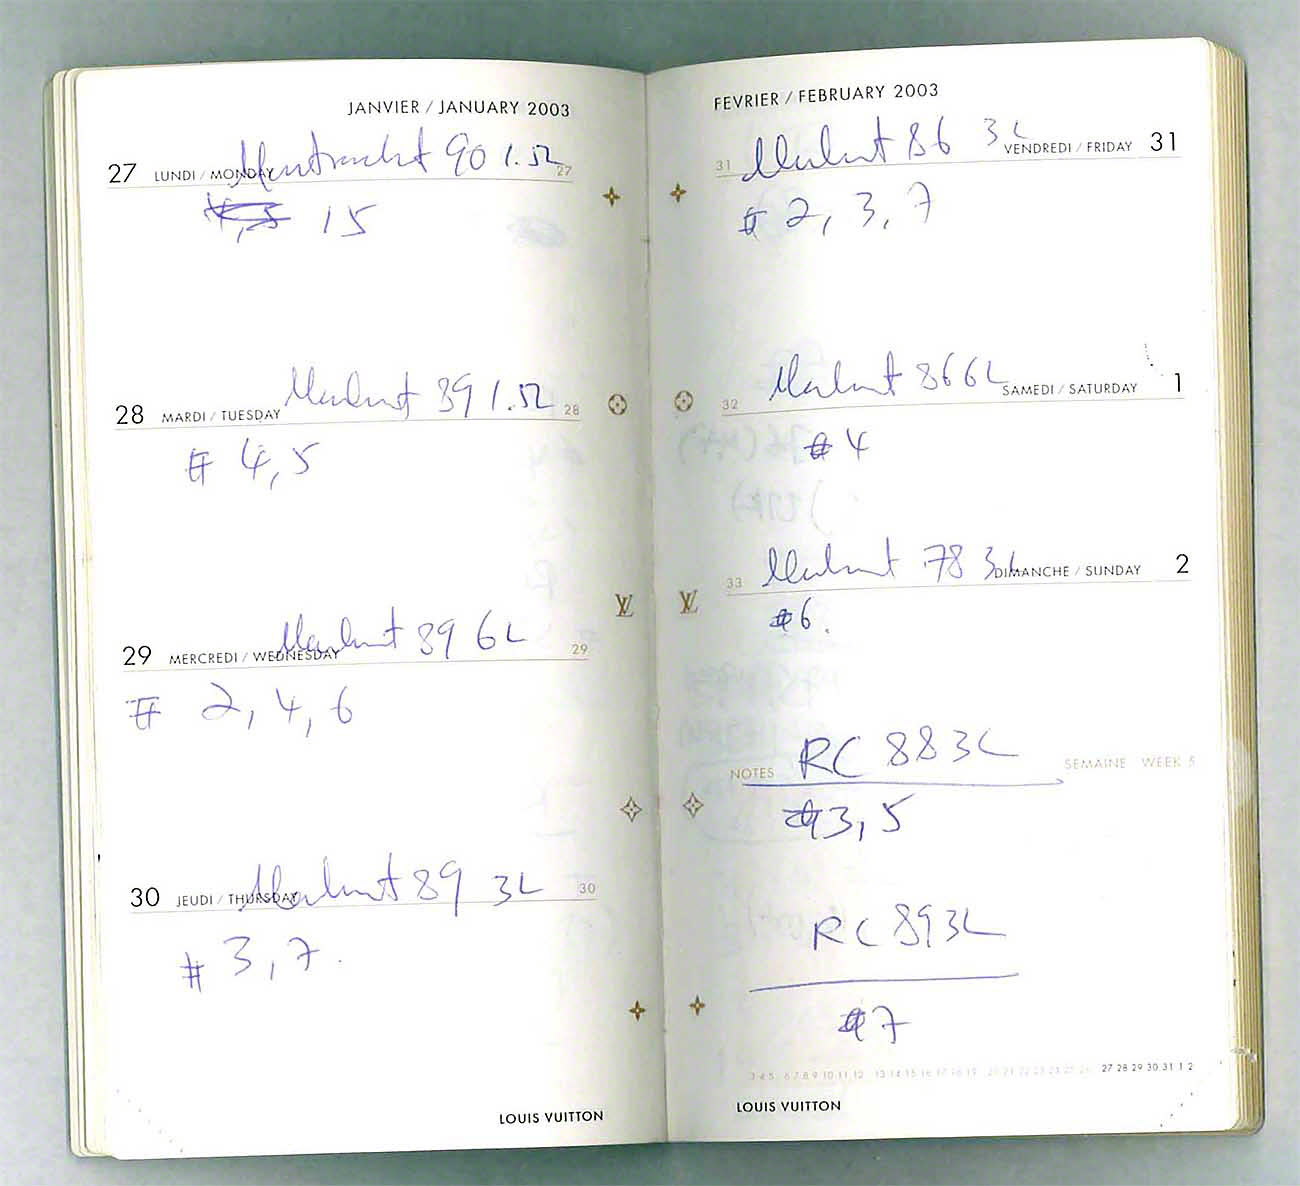 JANVIER / JANUARY 2003
27 LUNDI / MONDAY Montrachet 90 1.5L 27
15
28 MARDI / TUESDAY Montrachet 89 1.5L 28
# 4, 5
29 MERCREDI / WEDNESDAY Montrachet 89 6L 29
# 2, 4, 6
30 JEUDI / THURSDAY Montrachet 89 3L 30
# 3, 7.
LOUIS VUITTON
FEVRIER / FEBRUARY 2003
31 Montrachet 86 3L VENDREDI / FRIDAY 31
# 2, 3, 7
32 Montrachet 86 6L SAMEDI / SATURDAY 1
# 4
33 Montrachet 78 3L DIMANCHE / SUNDAY 2
# 6.
NOTES RC 88 3L SEMAINE WEEK 5
# 3, 5
RC 89 3L
# 7
3 4 5 6 7 8 9 10 11 12 13 14 15 16 17 18 19 20 21 22 23 24 25 26 27 28 29 30 31 1 2
LOUIS VUITTON